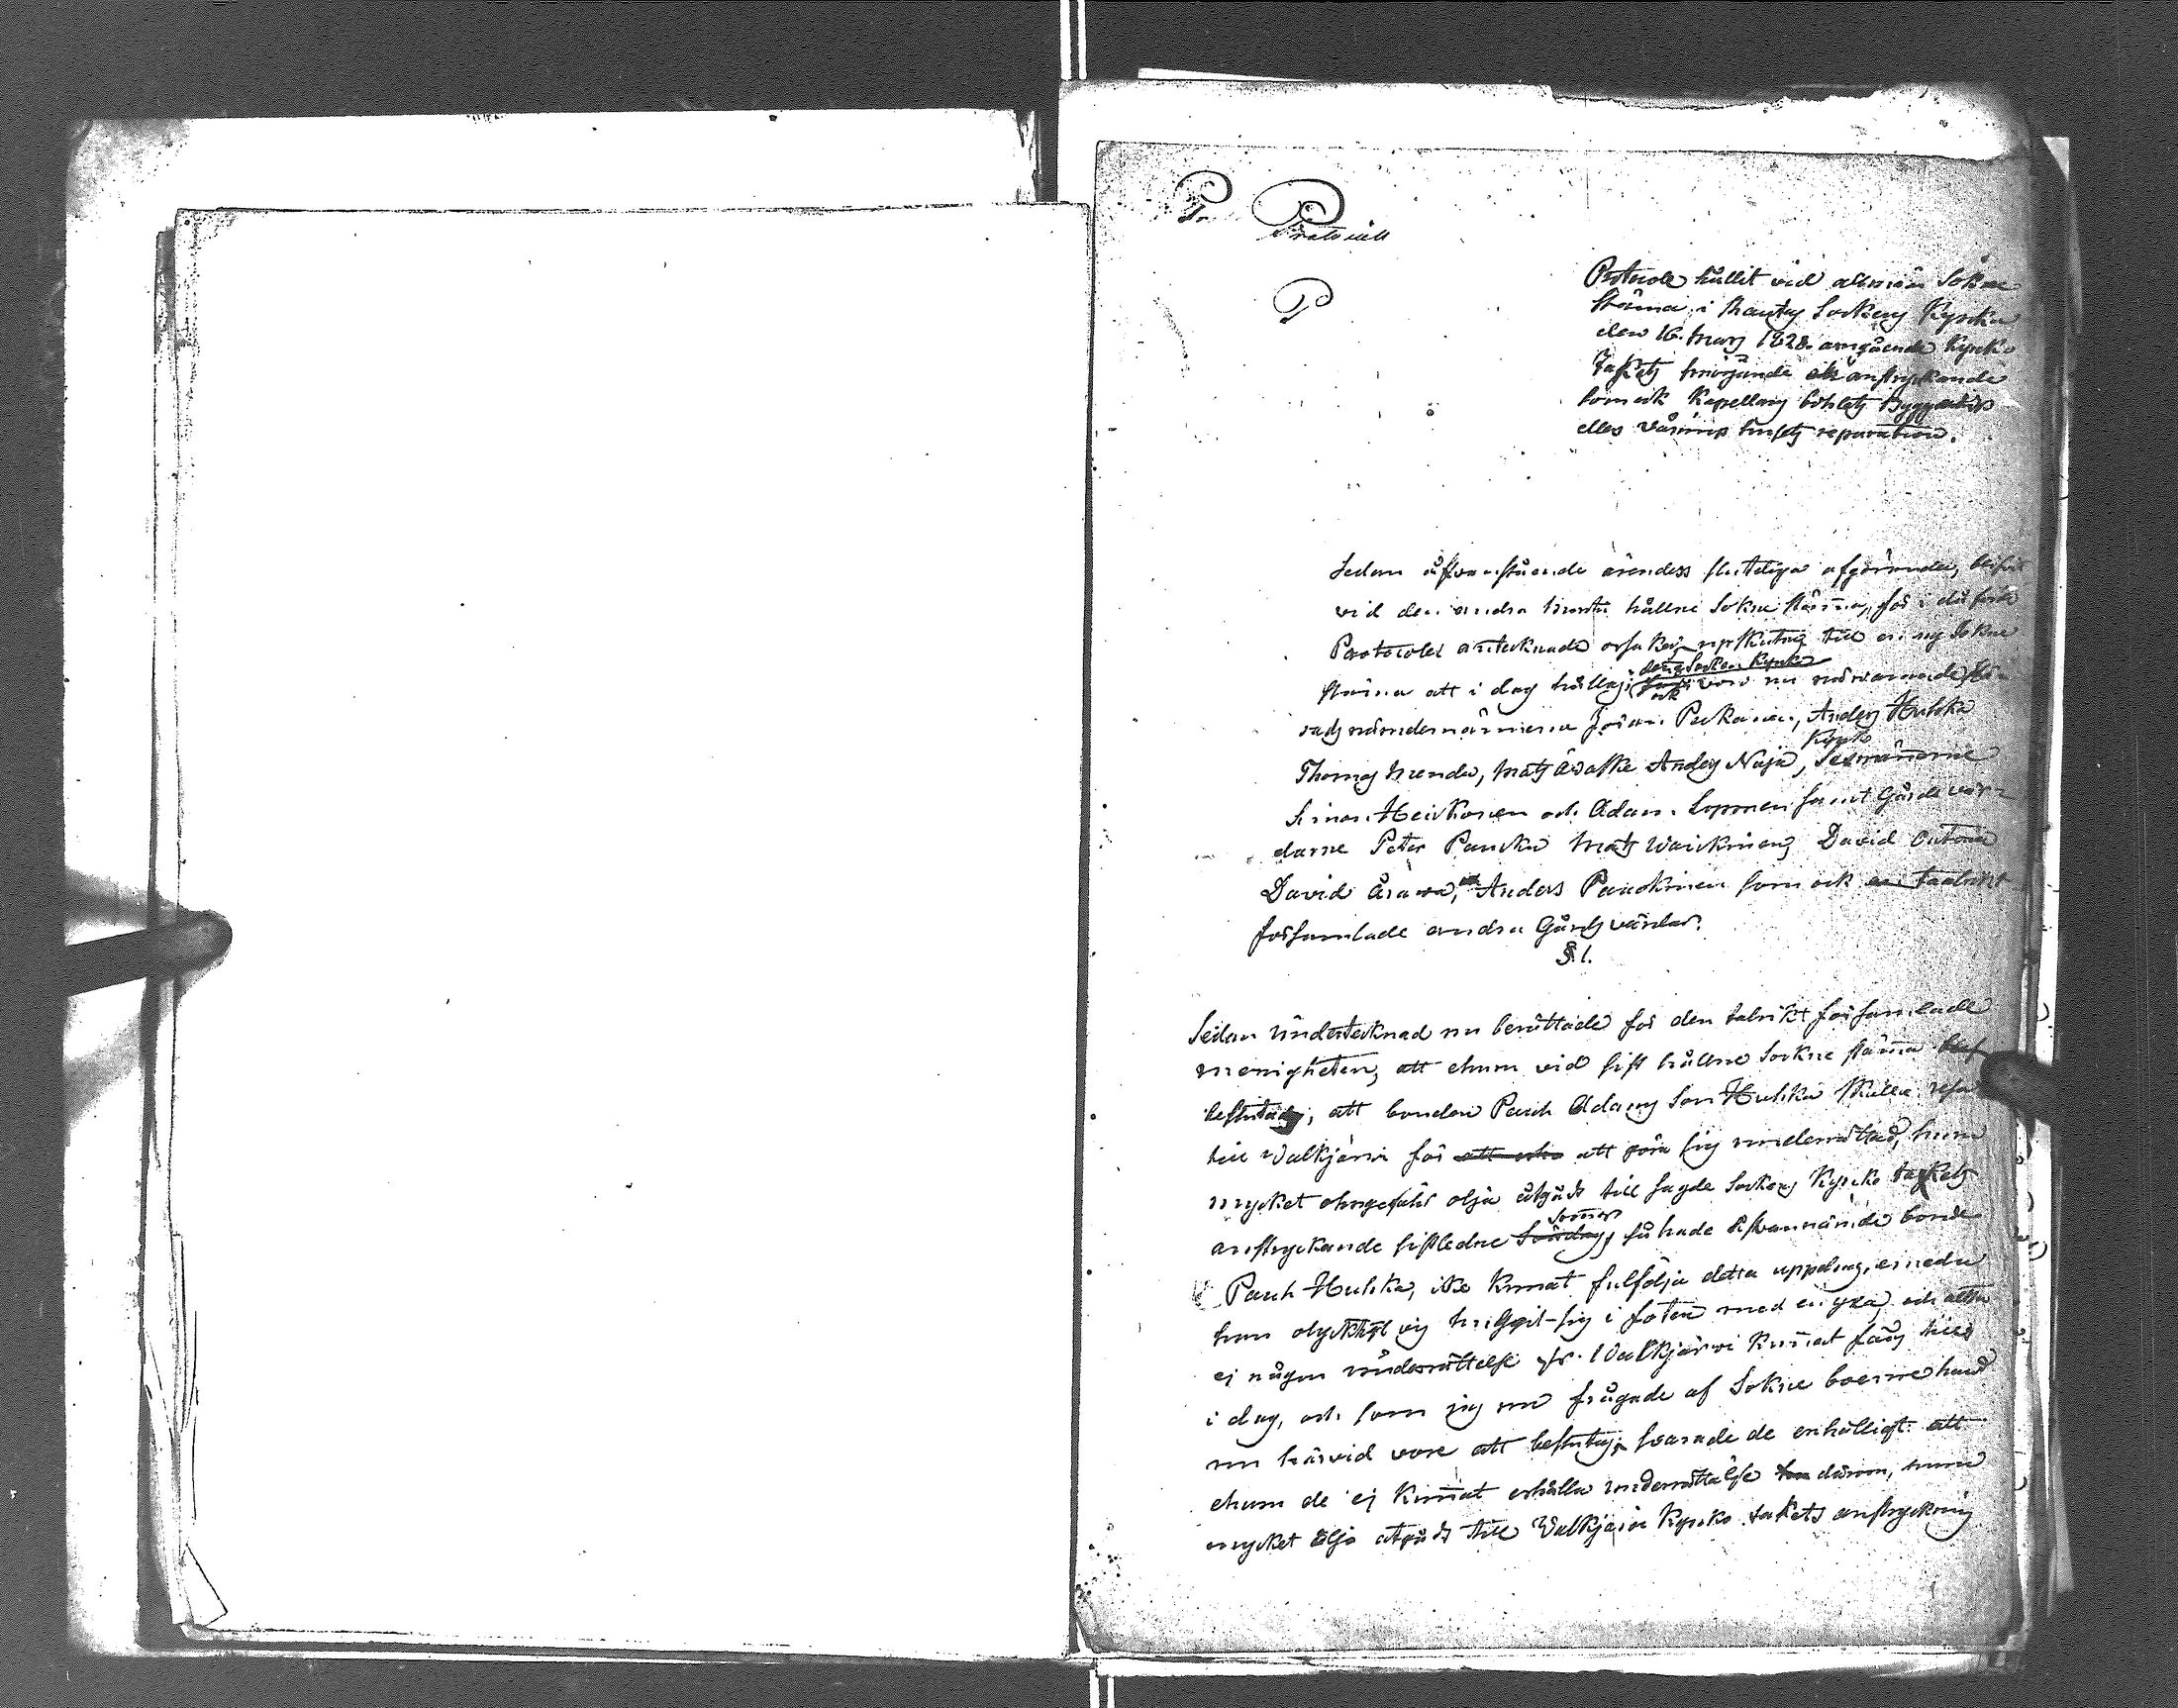 P P
Protocoll
P
Protocoll hållit vid allmän Sokne
stämma i Rautus Sockens Kyrka
den 16. Mars 1828. angående Kyrko
Takets smörjande och anstrykande
som ock Kapellans bohlets Byggande
eller vånings husets reparation.
Sedan åfvanstående ärendes sluteliga afgörande, blifvit
vid den andra hållne Sokne stämma, för i då förda
Protocollet antecknade orsaker, uppskutne till en ny Sokne
stämma att i dag hållas i denna Socken Kyrka
ock voro nu närvarande
nämdemännerne Johan Pukanen, Anders Huhka
Thomas Mendu, Mats Anders Naja, Kyrko Sexmännerne
Simon Heickonen och Adam Loponen samt Gårdsvär-
darne Peter Paucku Mats Waickinen, David Outona
David Anders Pauckinen som ock talrikt
församlade andra Gårds värdar.
§ 1.
Sedan undertecknad nu berättade för den talrikt församlade
menigheten, att ehuru vid sist hållne Sockne stämma blef
beslutadt, att bonden Pauh Adams Son Huhka skulle resa
till Walkjärvi för att att göra sig underrättad, huru
mycket ohngefähr olja åtgådt till sagde Sockens Kyrko takets
anstryckande sistledne Sommar, så hade åfvannämnde bonde
Pauh Huhka, icke kunnat fulfölja detta uppdrag, emedan
han olyckligt vis huggit sig i foten med en yxa, och altså
ej någon underrättelse fr. Walkjärvi kunnat fås till
i dag, och som jag nu frågade af Sokne boerne hvad
nu härvid vore att beslutas, svarade de enhälligt: att
ehuru de ej kunnat erhålla underrättelse derom, huru
mycket olja åtgådt till Walkjärvi Kyrko takets anstryckning